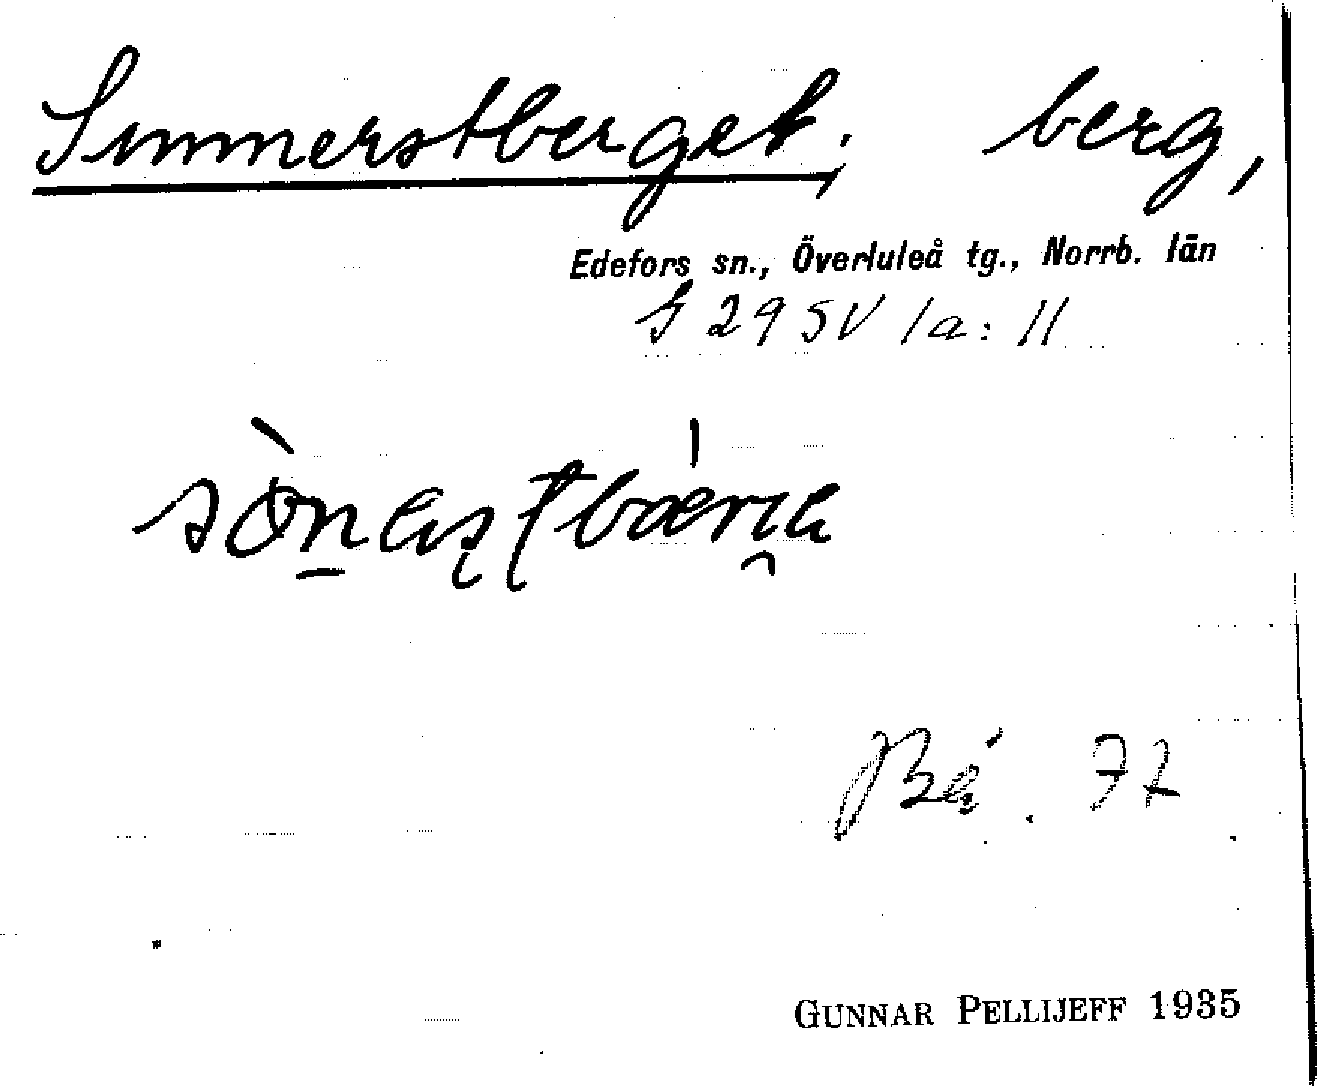 Sunnerstberget; berg,
Edefors sn., Överluleå tg., Norrb. län
S 29 SV 1a: 11
72
GUNNAR PELLIJEFF 1935